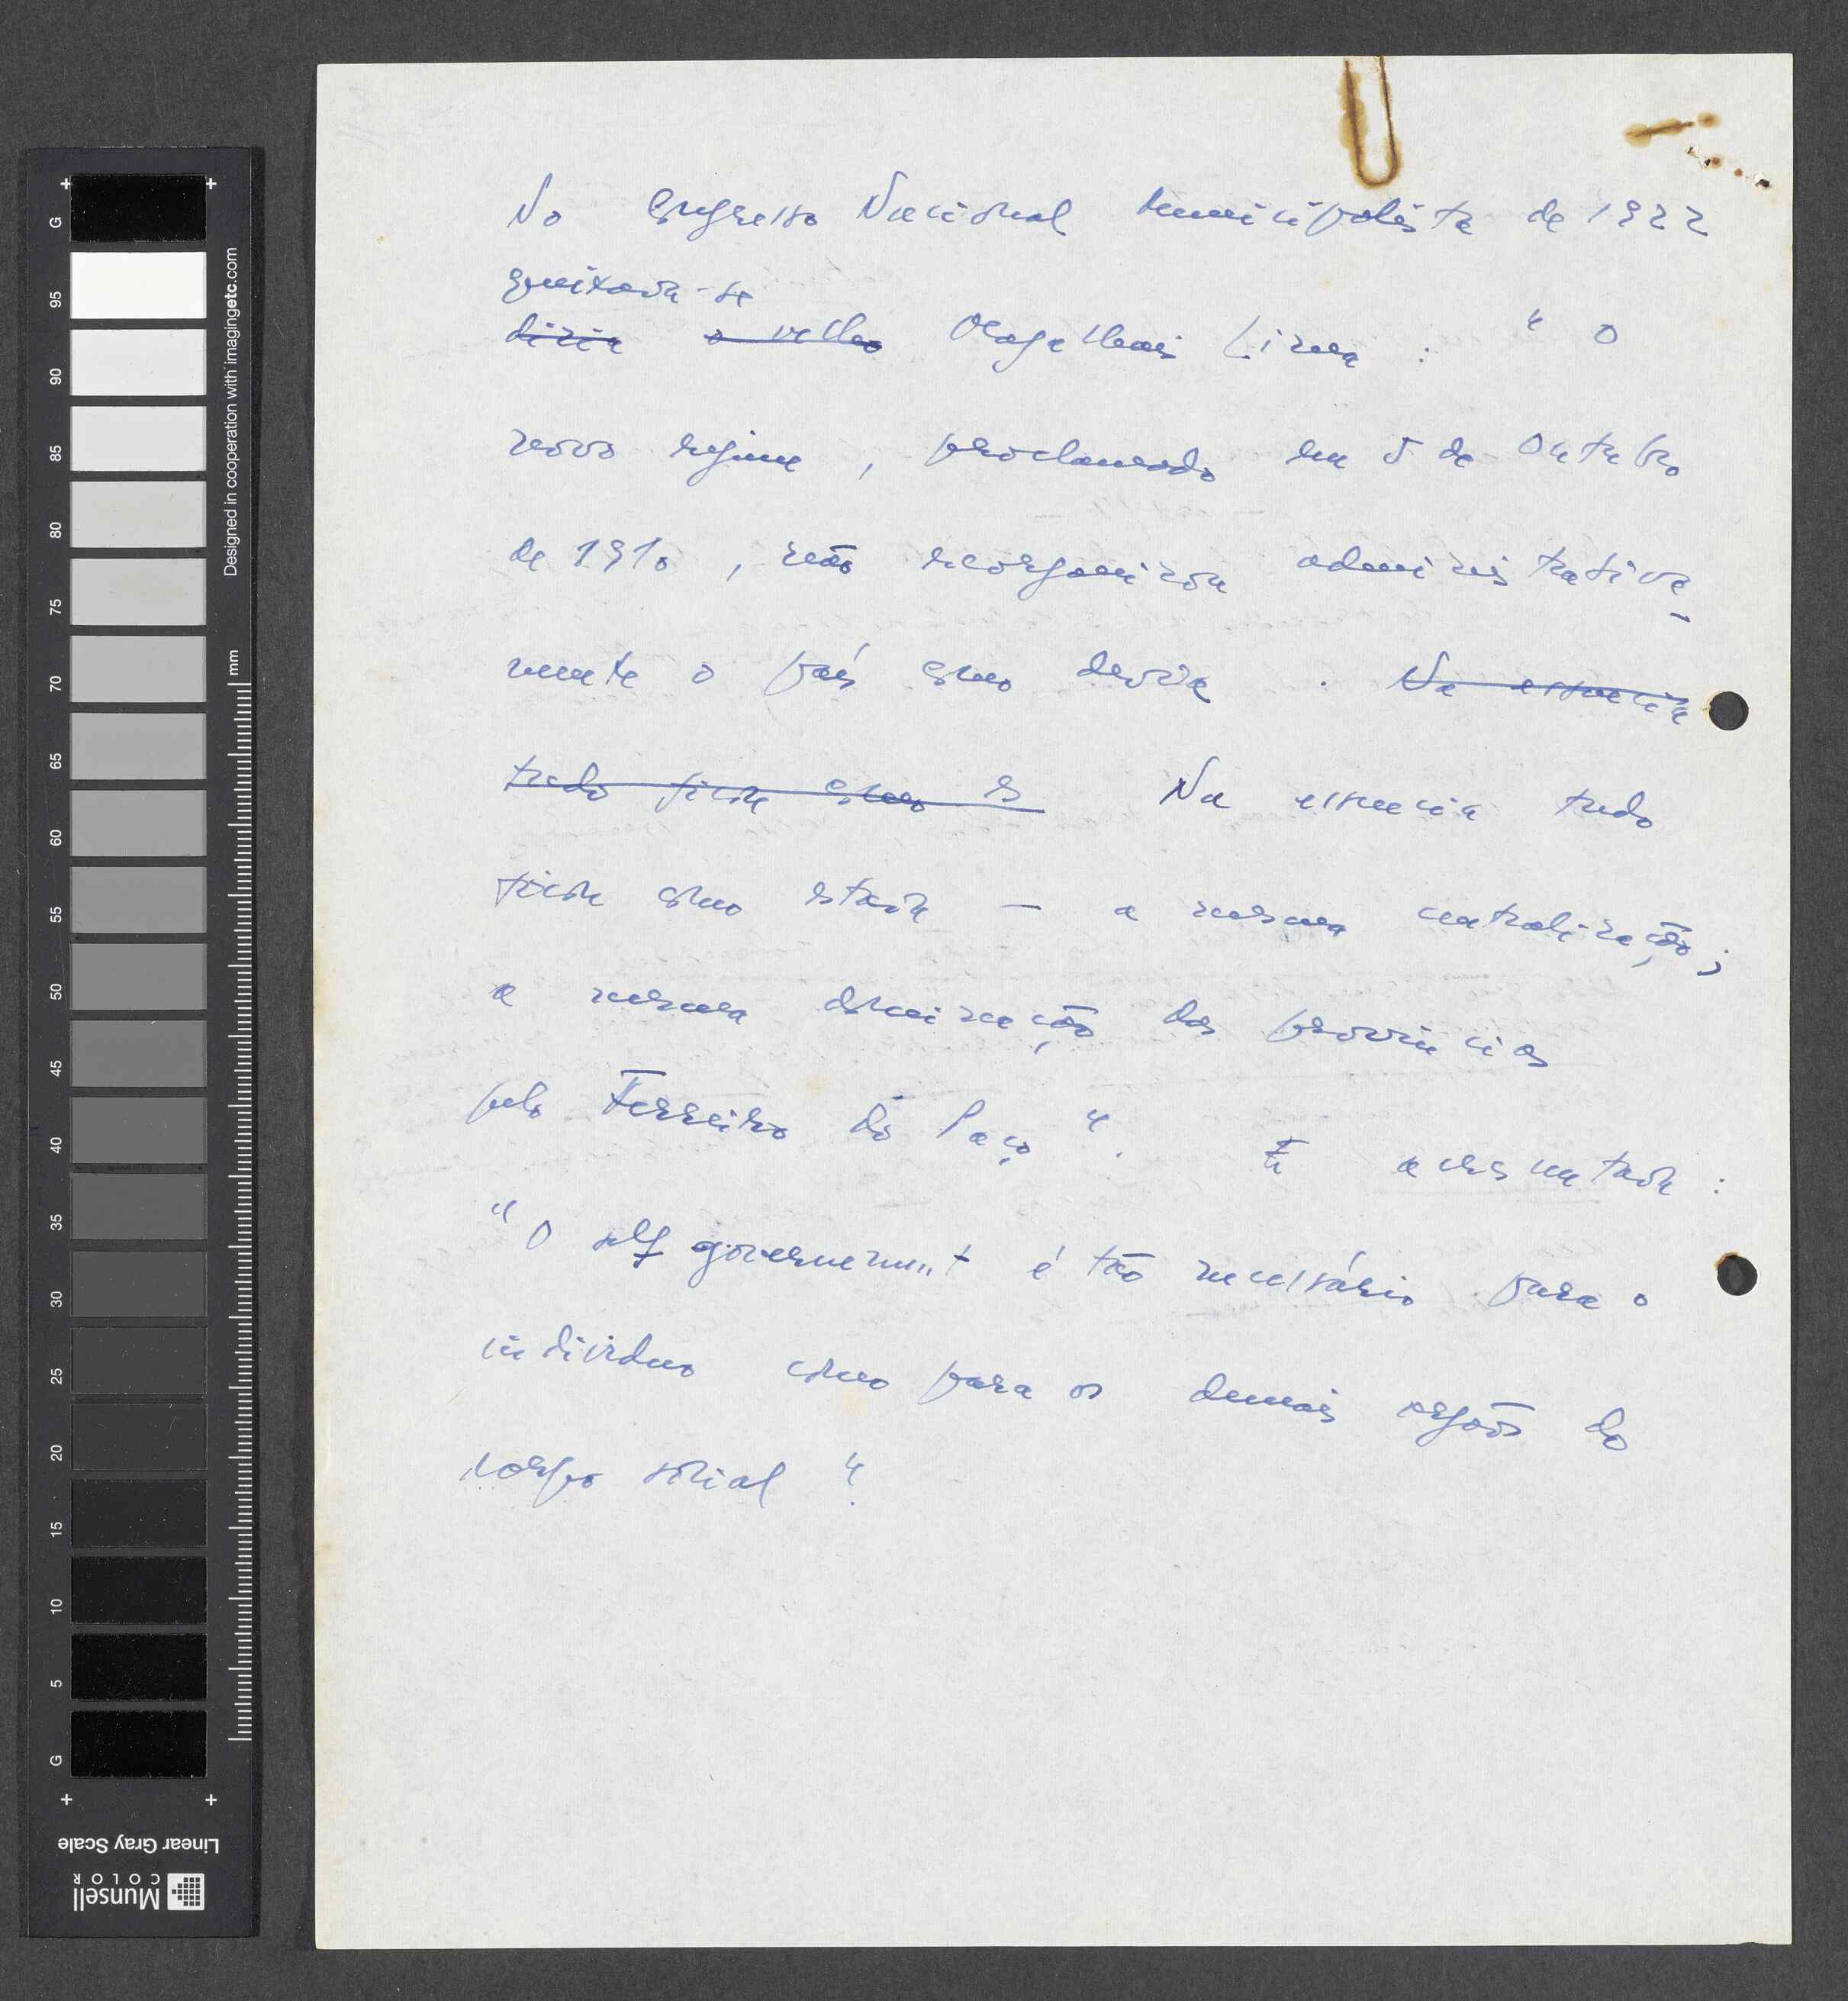 No Congresso Nacional Municipalista de 1922
queixava-se
dizia o velho Magalhães Lima : " O
novo regime , proclamado em 5 de Outubro
de 1910 , não reorganizou administrativa-
mente o país como devia . Na essência
tudo ficou como es Na essência tudo
ficou como estava — a mesma centralização ;
a mesma dominação das províncias
pelo Terreiro do Paço " . E acrescentava :
" O self governement é tão necessário para o
indivíduo como para os demais orgãos do
corpo social " .
G
95
90
85
80
75
70
65
60
55
50
45
40
35
30
25
20
15
10
5
G
mm
Designed in cooperation with imagingetc.com
Linear Gray Scale
Munsell
COLOR